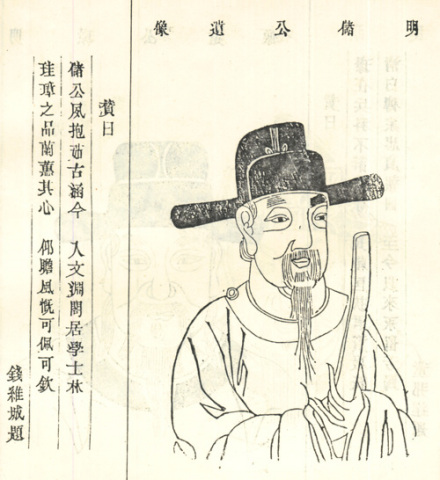 明儲公遺像
贊曰
儲公風抱茹古涵今 入文淵閣居學士林
珪璋之品蘭蕙其心 仰瞻風慨可佩可欽
錢維城題